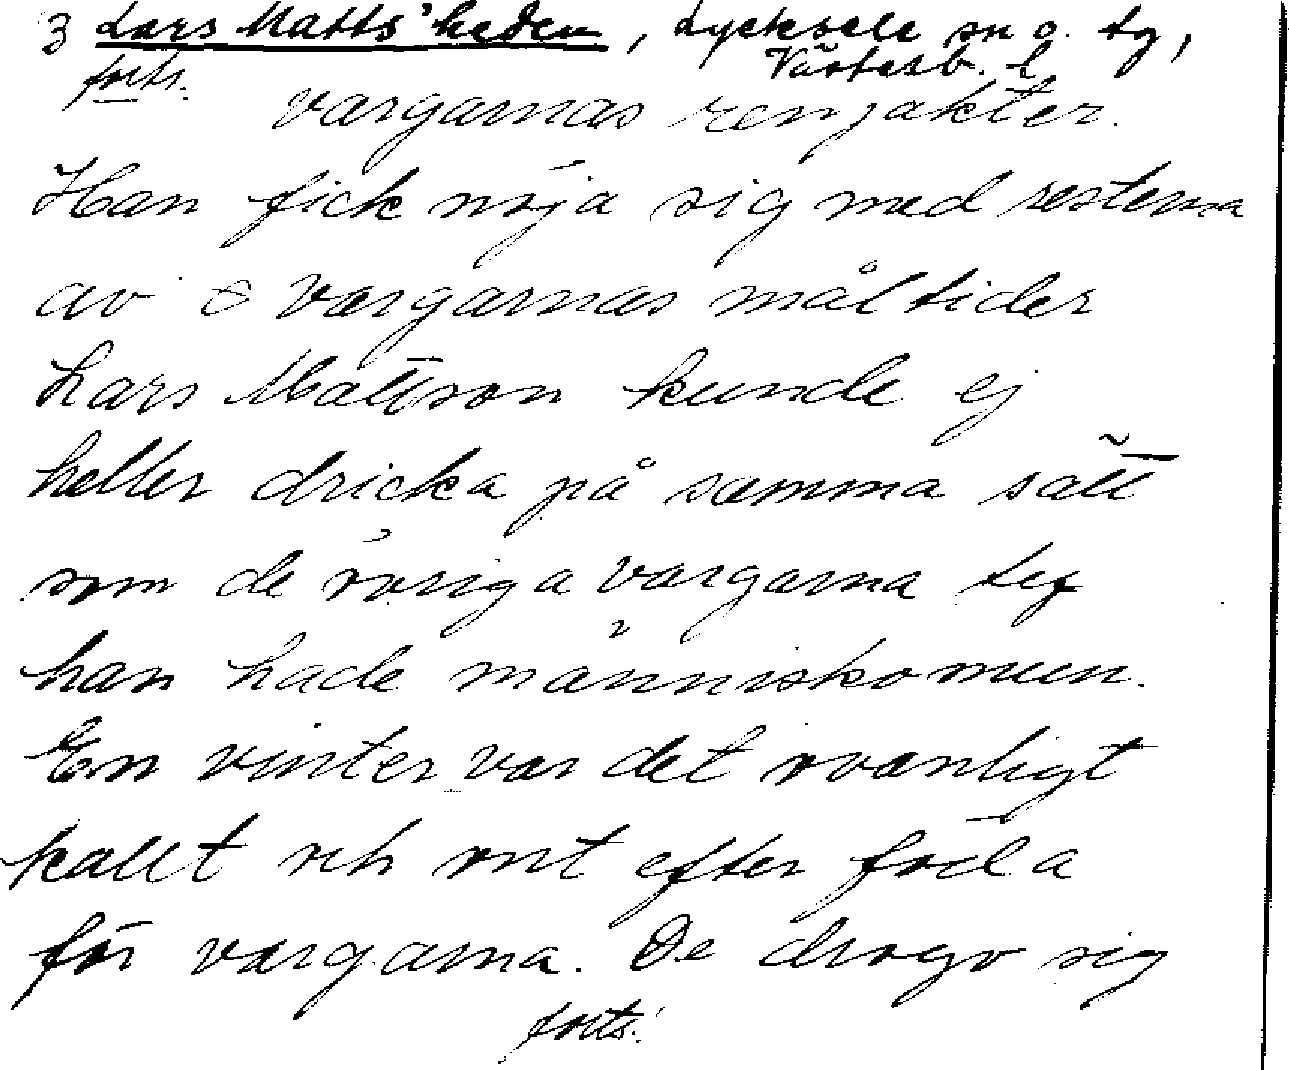 3 Lars Matts'heden, Lycksele sn o. tg,
Västerb. l.
forts.
vargarnas renjakter.
Han fick nöja sig med resterna
av vargarnas måltider
Lars Mattson kunde ej
heller dricka på samma sätt
som de övriga vargarna ty
han hade människomun.
En vinter var det ovanligt
kallt och ont efter föda
för vargarna. De drogo sig
forts.